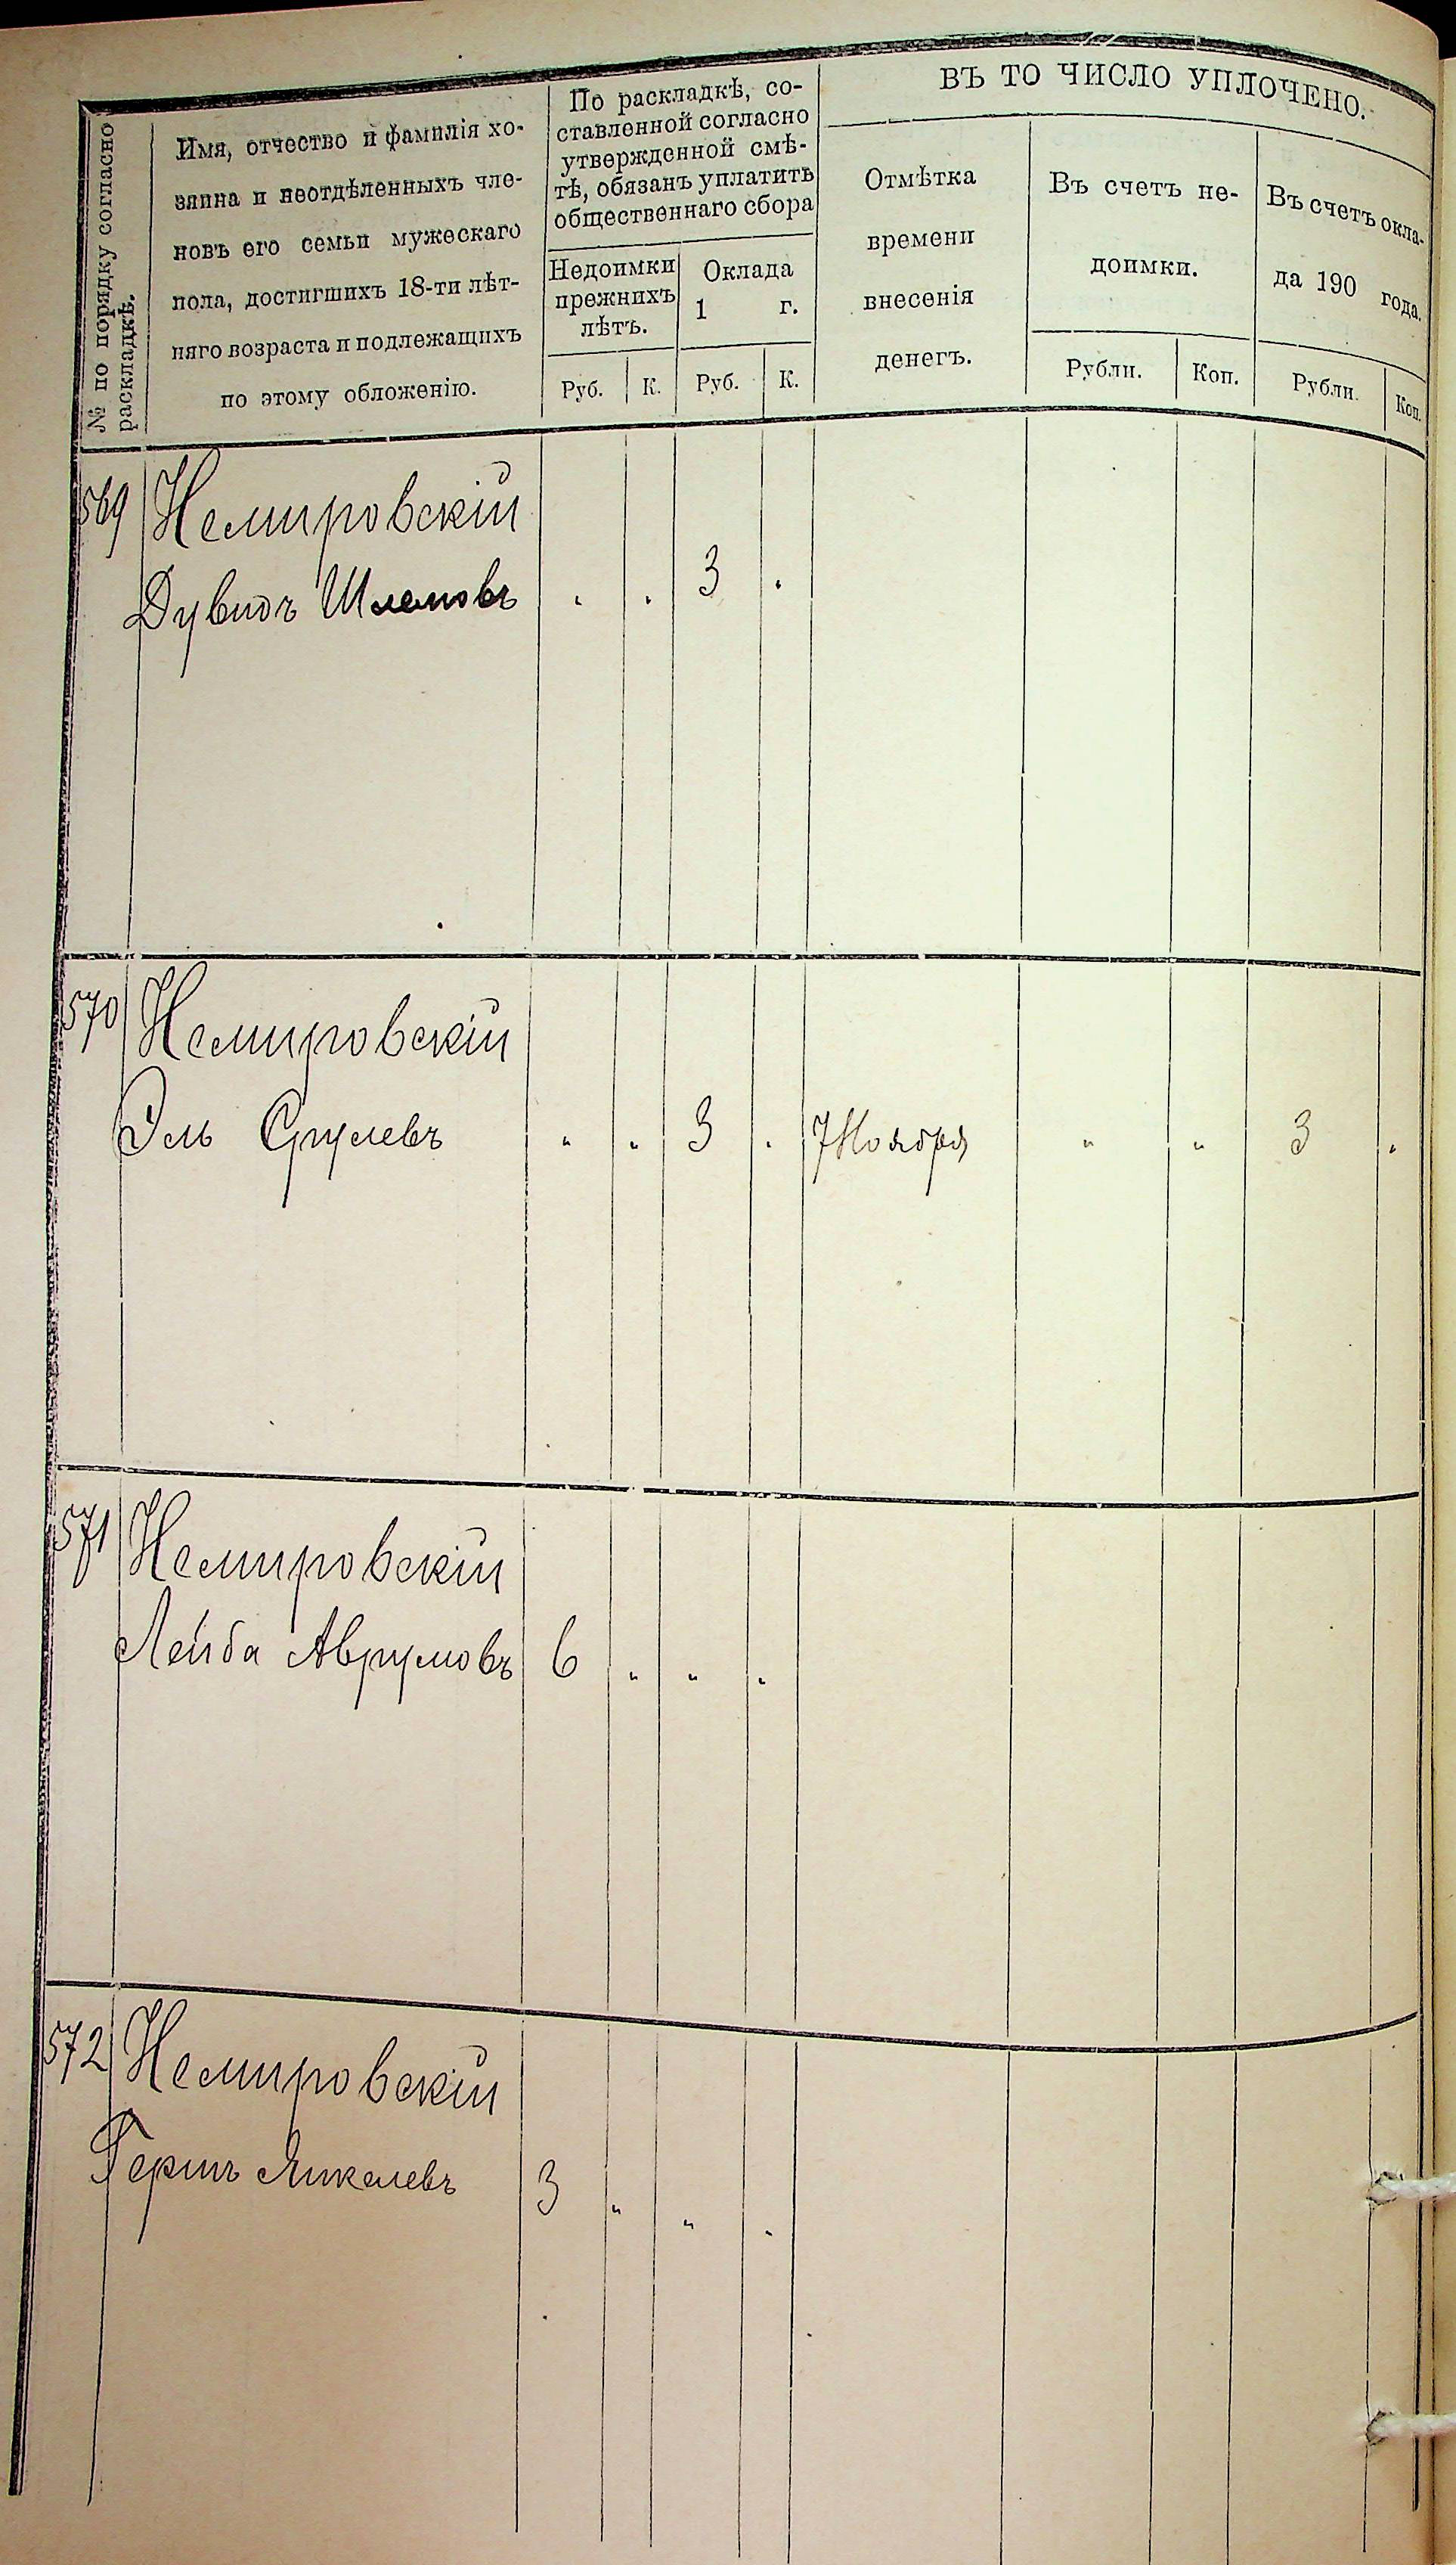 № по порядку согласно
раскладкѣ.
Имя, отчество и фамилія хо-
зяина и неотдѣленныхъ чле-
новъ его семьи мужескаго
пола, достигшихъ 18-ти лѣт-
няго возраста и подлежащихъ
по этому обложенію.
По раскладкѣ, со-
ставленной согласно
утвержденной смѣ-
тѣ, обязанъ уплатить
общественнаго сбора
Недоимки
прежнихъ
лѣтъ.
Руб. К.
Оклада
1 г.
Руб. К.
ВЪ ТО ЧИСЛО УПЛОЧЕНО.
Отмѣтка
времени
внесенія
денегъ.
Въ счетъ не-
доимки.
Рубли. Коп.
Въ счетъ окла-
да 190 года.
Рубли. Коп.
569 Немировскій
Дувидъ Шлемовъ „ „ 3 „
570 Немировскій
Эль Срулевъ „ „ 3 „ 7 Ноября „ „ 3 „
571 Немировскій
Лейба Аврумовъ 6 „ „ „
572 Немировскій
Гершъ Янкелевъ 3 „ „ „